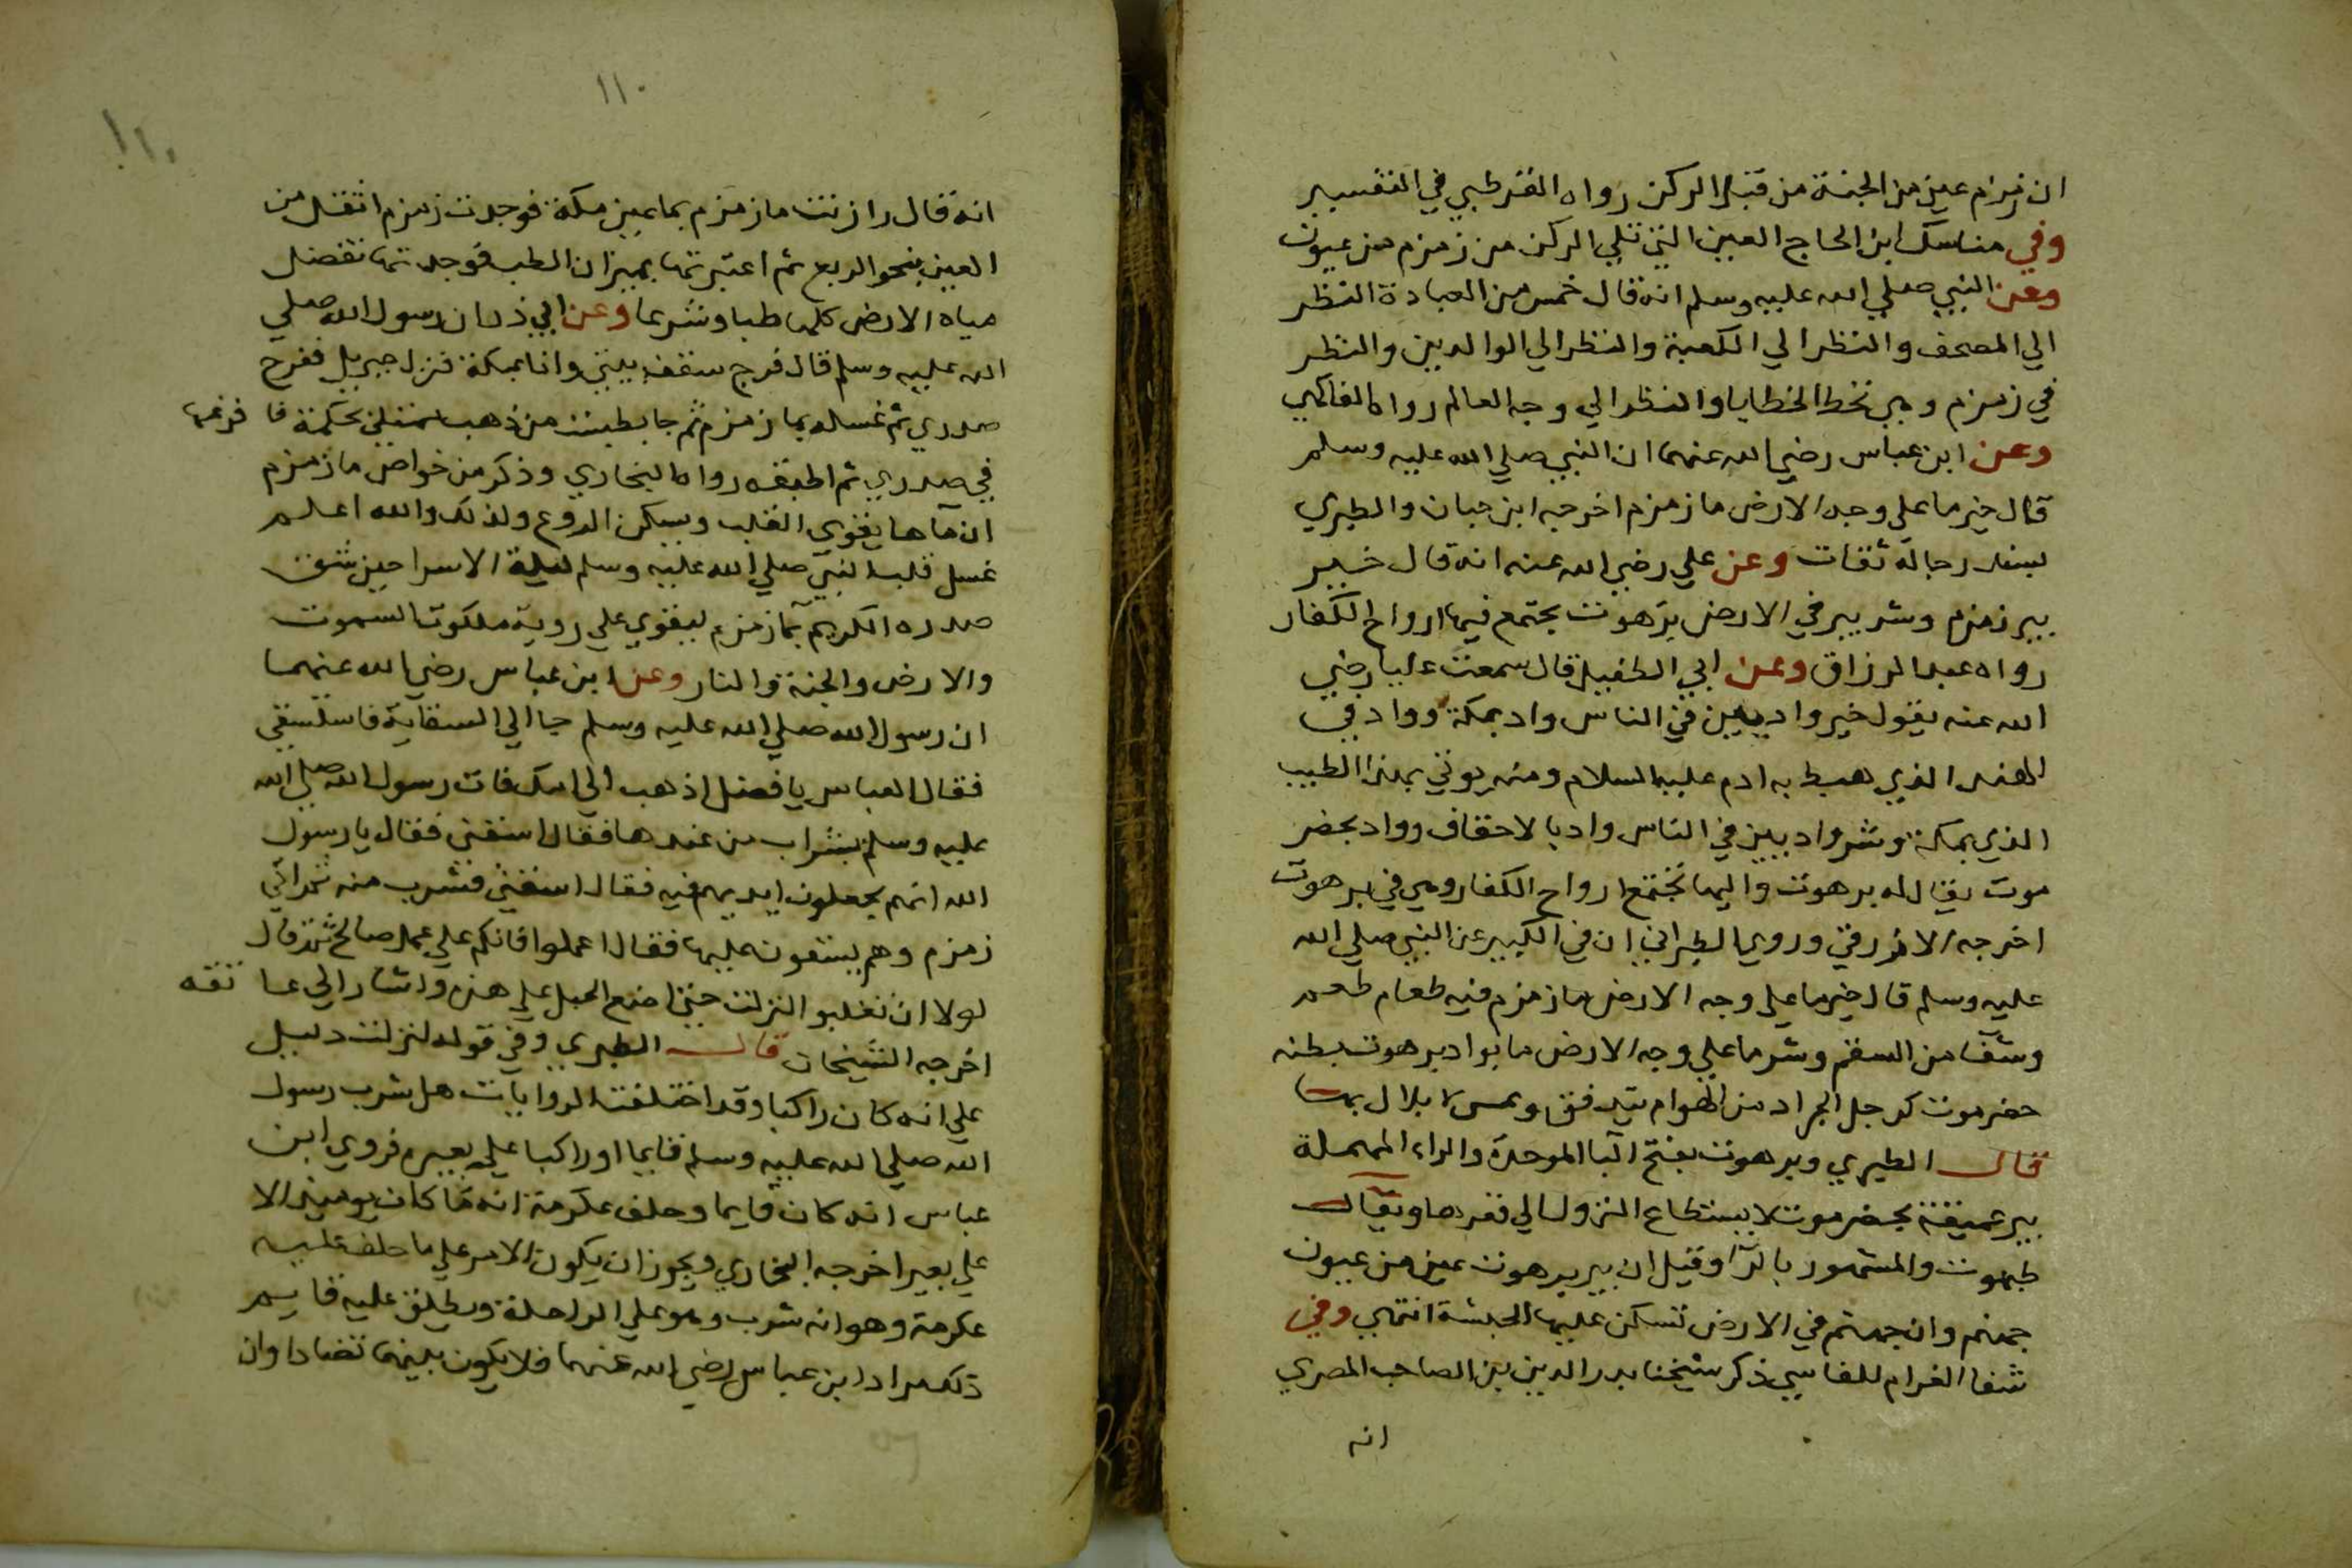 ان زمزم عين من الجنة من قبل الركن رواه القرطبي في التفسير
وفي مناسك ابن الحاج العين التي تلي الركن من زمزم من عيون
وعن النبي صلي الله عليه وسلم انه قال خمس من العبادة النظر
الي المصحف والنظر الي الكعبة والنظر الي الوالدين والنظر
في زمزم وهي تحط الخطايا والنظر الي وجه العالم رواه الفاكهي
وعن ابن عباس رضي الله عنهما ان النبي صلي الله عليه وسلم
قال خير ما علي وجه الارض ما زمزم اخرجه ابن حبان والطبري
بسند رجاله ثقات وعن علي رضي الله عنه انه قال خير
بير زمزم وشر بير في الارض برهوت يجتمع فيها ارواح الكفار
رواه عبد الرزاق وعن ابي الطفيل قال سمعت عليا رضي
الله عنه يقول خير واديين في الناس واد بمكة وواد في
الهند الذي هبط به ادم عليه السلام ومنه يوتي بهذا الطيب
الذي بمكة وشر واديين في الناس واد بالاحقاف وواد بحضر
موت يقال له برهوت واليها تجتمع ارواح الكفار وهي في برهوت
اخرجه الازرقي وروي الطبراني ان في الكبير عن النبي صلي الله
عليه وسلم قال خير ما علي وجه الارض ما زمزم فيه طعام طعم
وشفا من السقم وشر ما علي وجه الارض ما بواد برهوت بطنه
حضرموت كرجل الجراد من الهوام يتدفق ويمسي لا بلال بها
قال الطبري وبرهوت بفتح البا الموحدة والراء المهملة
بير عميقة بحضرموت لا يستطاع النزول الي قعرها ويقال
طبهوت والمشهور بالرا وقيل ان بير برهوت عين من عيون
جهنم وان جهنم في الارض تسكن عليها الحبشة انتهي وفي
شفا الغرام للفاسي ذكر شيخنا بدر الدين بن الصاحب المصري
انه
١١٠
١١٠
انه قال وازنت ما زمزم بما عين مكة فوجدت زمزم اثقل من
العين بنحو الربع ثم اعتبرتها بميزان الطب فوجدتها تفضل
مياه الارض كلها طبا وشرعا وعن ابي ذر ان رسول الله صلي
الله عليه وسلم قال فرج سقف بيتي وانا بمكة فنزل جبريل ففرج
صدري ثم غسله بما زمزم ثم جا بطست من ذهب ممتلئ حكمة فا فرغها
في صدري ثم اطبقه رواه البخاري وذكر من خواص ما زمزم
ان ماها يقوي القلب ويسكن الروع ولذلك والله اعلم
غسل قلب النبي صلي الله عليه وسلم ليلة الاسرا حين شق
صدره الكريم بما زمزم ليقوي علي روية ملكوت السموت
والارض والجنة والنار وعن ابن عباس رضي الله عنهما
ان رسول الله صلي الله عليه وسلم جا الي السقاية فاستسقي
فقال العباس يا فضل اذهب الي امك فات رسول الله صلي الله
عليه وسلم بشراب من عندها فقال اسقني فقال يا رسول
الله انهم يجعلون ايديهم فيه فقال اسقني فشرب منه ثم اتي
زمزم وهم يستقون عليها فقال اعملوا فانكم علي عمل صالح ثم قال
لولا ان تغلبوا لنزلت حتي اضع الحبل علي هذه واشار الي عا تقه
اخرجه الشيخان قال الطبري وفي قوله لنزلت دليل
علي انه كان راكبا وقد اختلفت الروايات هل شرب رسول
الله صلي الله عليه وسلم قايما او راكبا علي بعيره فروي ابن
عباس انه كان قايما وحلف عكرمة انه ما كان يوميذ الا
علي بعير اخرجه البخاري ويجوز ان يكون الامر علي ما حلف عليه
عكرمة وهو انه شرب وهو علي الراحلة ويطلق عليه قايم
ذلك مراد ابن عباس رضي الله عنهما فلا يكون بينهما تضادا وان